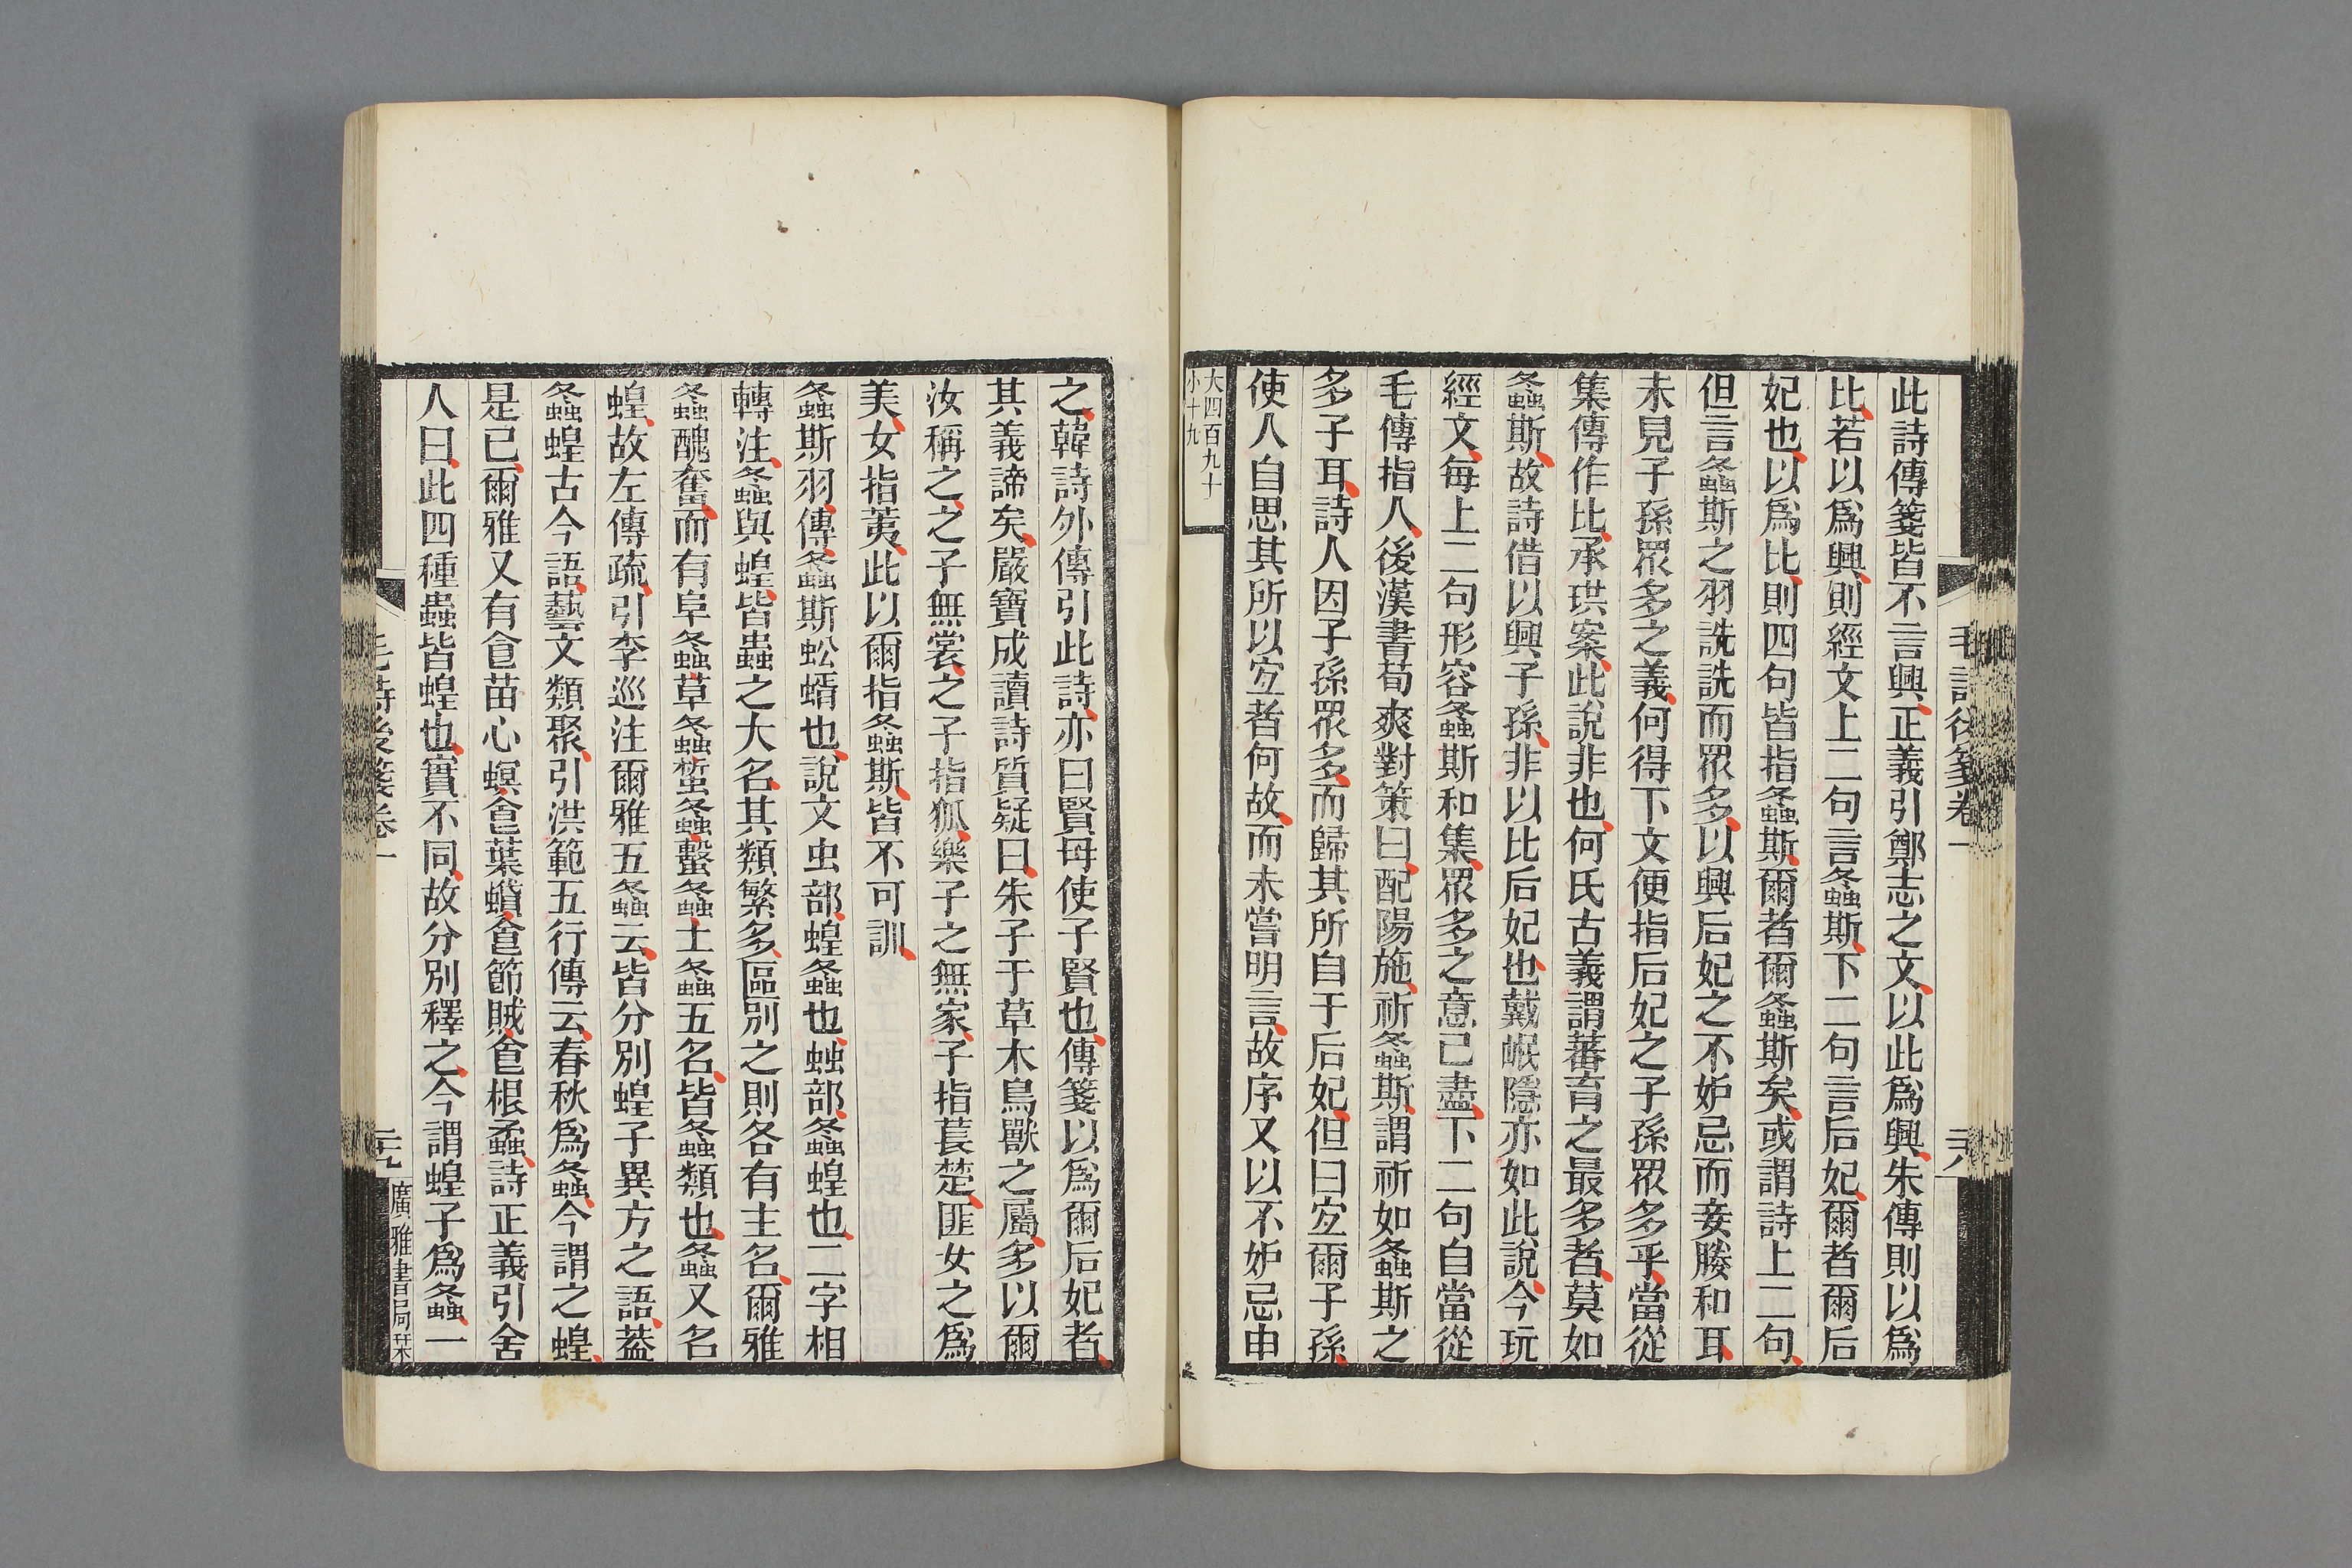 毛詩後箋卷一
二八
此詩傳箋皆不言興正義引鄭志之文以此爲興朱傳則以爲
比若以爲興則經文上二句言螽斯下二句言后妃爾者爾后
妃也以爲比則四句皆指螽斯爾者爾螽斯矣或謂詩上二句
但言螽斯之羽詵詵而眾多以興后妃之不妒忌而妾媵和耳
未見子孫眾多之義何得下文便指后妃之子孫眾多乎當從
集傳作比承珙案此說非也何氏古義謂蕃育之最多者莫如
螽斯故詩借以興子孫非以比后妃也戴岷隱亦如此說今玩
經文每上二句形容螽斯和集眾多之意已盡下二句自當從
毛傳指人後漢書荀爽對策曰配陽施祈螽斯謂祈如螽斯之
多子耳詩人因子孫眾多而歸其所自于后妃但曰宐爾子孫
使人自思其所以宐者何故而未嘗明言故序又以不妒忌申
大四百九十
小十九
之韓詩外傳引此詩亦曰賢母使子賢也傳箋以爲爾后妃者
其義諦矣嚴寶成讀詩質疑曰朱子于草木鳥獸之屬多以爾
汝稱之之子無裳之子指狐樂子之無家子指萇楚匪女之爲
美女指荑此以爾指螽斯皆不可訓
螽斯羽傳螽斯蚣蝑也說文虫部蝗螽也䖵部螽蝗也二字相
轉注螽與蝗皆蟲之大名其類繁多區別之則各有主名爾雅
螽醜奮而有阜螽草螽蜤螽蟿螽土螽五名皆螽類也螽又名
蝗故左傳疏引李巡注爾雅五螽云皆分別蝗子異方之語葢
螽蝗古今語藝文類聚引洪範五行傳云春秋爲螽今謂之蝗
是已爾雅又有食苗心螟食葉蟘食節賊食根蟊詩正義引舍
人曰此四種蟲皆蝗也實不同故分別釋之今謂蝗子爲螽一
毛詩後箋卷一
二九
廣雅書局栞